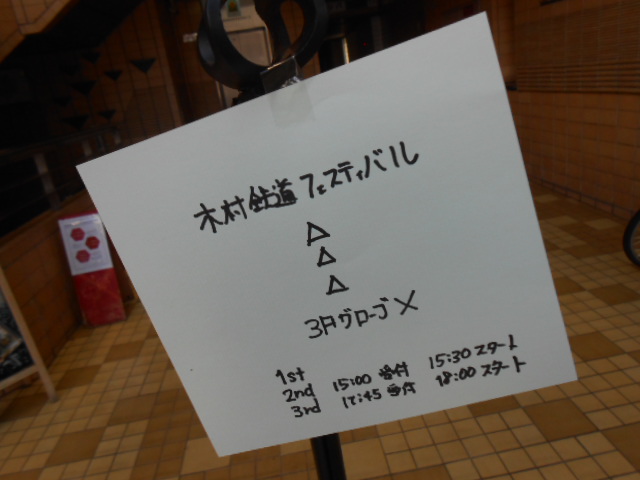 木村鉄道フェスティバル
△
△
△
3Fグローブ×
1st
2nd 15:00 受付 15:30 スタート
3rd 17:45 受付 18:00 スタート